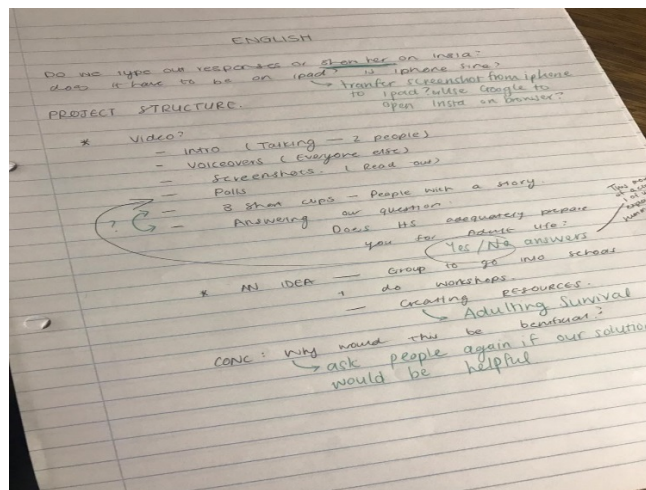 ENGLISH
Do we type out responses or on insta?
does it have to be on ipad? is iphone fine?
tranfer screenshot from iphone
to ipad? use Google to
open insta on browser?
PROJECT STRUCTURE.
* Video?
- Intro (Talking - 2 people)
- Voiceovers (Everyone else)
- Screenshots. (Read out)
- Polls
- 3 Short clips - People with a story.
? - Answering our question.
Does HS adequately prepare
you for Adult life?
Yes/No answers
* AN IDEA - Group to go into schools
+ do workshops.
- Creating RESOURCES.
Adulting Survival
CONC: Why would this be benificial?
ask people again if our solution
would be helpful